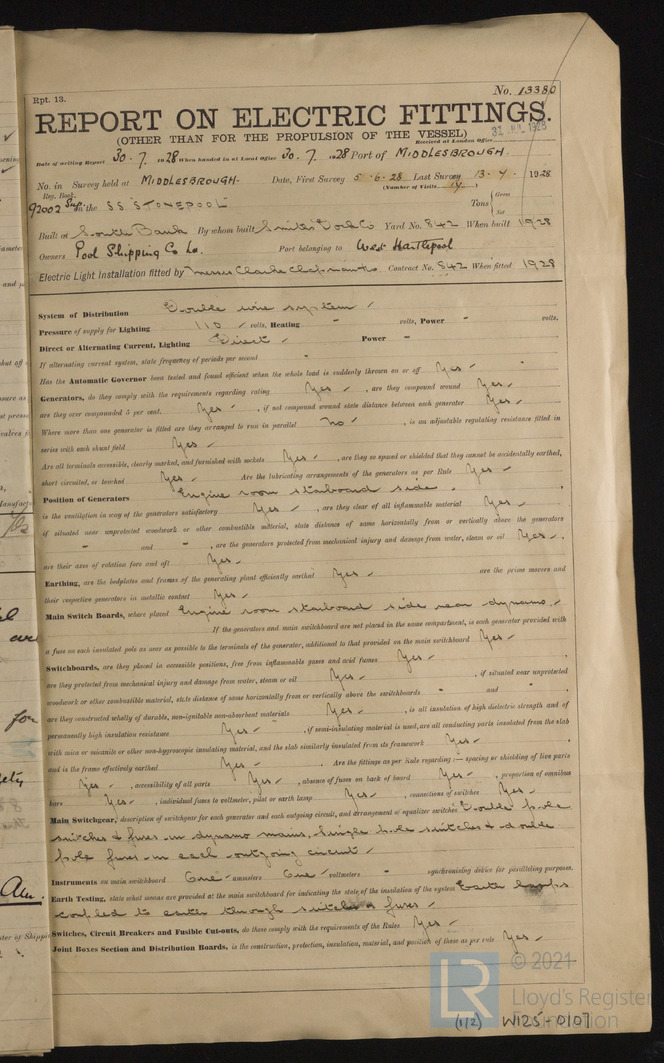 Rpt. 13.
No. 13380
REPORT ON ELECTRIC FITTINGS.
(OTHER THAN FOR THE PROPULSION OF THE VESSEL)
Received at London Office 31 JUL 1928
Date of writing Report 30.7.1928 When handed in at Local Office 30.7.1928 Port of MIDDLESBROUGH.
No. in Survey held at MIDDLESBROUGH. Date, First Survey 5.6.28 Last Survey 13.7.1928
Reg. Book. (Number of Visits 14)
92002 Sup on the SS. "STONEPOOL" Tons { Gross
Net
Built at South Bank By whom built Smiths Dock Co Yard No. 842 When built 1928
Owners Pool Shipping Co Ld. Port belonging to West Hartlepool
Electric Light Installation fitted by Messrs Clarke Chapman & Co Contract No. 842 When fitted 1928
System of Distribution Double wire system
Pressure of supply for Lighting 110 volts, Heating - volts, Power - volts.
Direct or Alternating Current, Lighting Direct Power -
If alternating current system, state frequency of periods per second -
Has the Automatic Governor been tested and found efficient when the whole load is suddenly thrown on or off Yes
Generators, do they comply with the requirements regarding rating Yes, are they compound wound Yes
are they over compounded 5 per cent. Yes, if not compound wound state distance between each generator Yes
Where more than one generator is fitted are they arranged to run in parallel no, is an adjustable regulating resistance fitted in
series with each shunt field Yes
Are all terminals accessible, clearly marked, and furnished with sockets Yes, are they so spaced or shielded that they cannot be accidentally earthed,
short circuited, or touched Yes Are the lubricating arrangements of the generators as per Rule Yes
Position of Generators Engine room starboard side.
is the ventilation in way of the generators satisfactory Yes, are they clear of all inflammable material Yes
if situated near unprotected woodwork or other combustible material, state distance of same horizontally from or vertically above the generators
- and -, are the generators protected from mechanical injury and damage from water, steam or oil Yes.
are their axes of rotation fore and aft Yes
Earthing, are the bedplates and frames of the generating plant efficiently earthed Yes are the prime movers and
their respective generators in metallic contact Yes
Main Switch Boards, where placed Engine room starboard side near dynamo.
If the generators and main switchboard are not placed in the same compartment, is each generator provided with
a fuse on each insulated pole as near as possible to the terminals of the generator, additional to that provided on the main switchboard Yes
Switchboards, are they placed in accessible positions, free from inflammable gases and acid fumes Yes
are they protected from mechanical injury and damage from water, steam or oil Yes, if situated near unprotected
woodwork or other combustible material, state distance of same horizontally from or vertically above the switchboards - and -
are they constructed wholly of durable, non-ignitable non-absorbent materials Yes, is all insulation of high dielectric strength and of
permanently high insulation resistance Yes, if semi-insulating material is used, are all conducting parts insulated from the slab
with mica or micanite or other non-hygroscopic insulating material, and the slab similarly insulated from its framework Yes
and is the frame effectively earthed Yes. Are the fittings as per Rule regarding:— spacing or shielding of live parts
Yes, accessibility of all parts Yes, absence of fuses on back of board Yes, proportion of omnibus
bars Yes, individual fuses to voltmeter, pilot or earth lamp Yes, connections of switches Yes
Main Switchgear, description of switchgear for each generator and each outgoing circuit, and arrangement of equalizer switches Double pole
switches & fuses on dynamo mains, single pole switches & double
pole fuses on each outgoing circuit
Instruments on main switchboard One ammeters One voltmeters - synchronising device for paralleling purposes.
Earth Testing, state what means are provided at the main switchboard for indicating the state of the insulation of the system Earth lamps
coupled to earth through switches & fuses
Switches, Circuit Breakers and Fusible Cut-outs, do these comply with the requirements of the Rules Yes
Joint Boxes Section and Distribution Boards, is the construction, protection, insulation, material, and position of these as per rule Yes
© 2021
LR Lloyd's Register
Foundation
(1/2) W125-0107